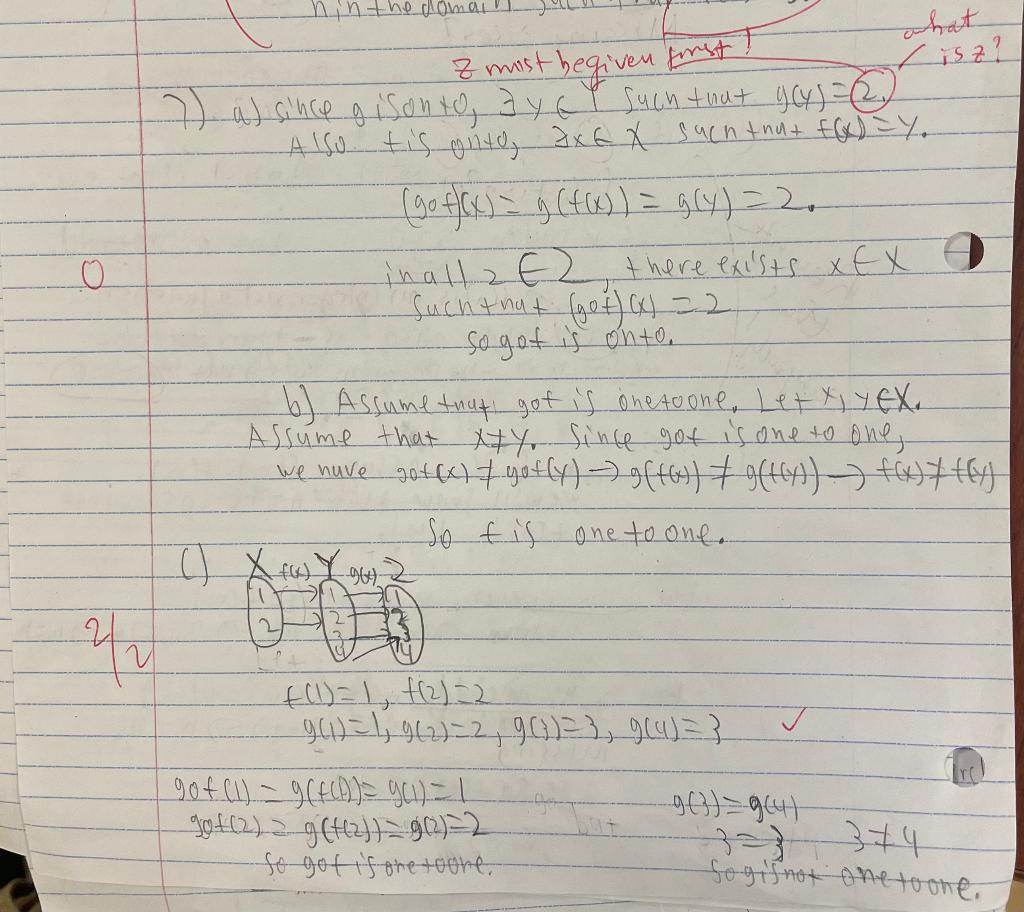 n in the domain such that
z must be given first!
what
is z?
7) a) since g is onto, ∃ y ∈ Y such that g(y) = z.
Also f is onto, ∃x ∈ X such that f(x) = y.
(gof)(x) = g(f(x)) = g(y) = z.
0
in all z ∈ Z, there exists x ∈ X
such that (gof)(x) = z
so gof is onto.
b) Assume that gof is one to one. Let x, y ∈ X.
Assume that x ≠ y. Since gof is one to one,
we have gof(x) ≠ gof(y) → g(f(x)) ≠ g(f(y)) → f(x) ≠ f(y)
So f is one to one.
c) X f(x) Y g(x) Z
1 1 1
2 2 2
3 3
4 4
2/2
f(1) = 1, f(2) = 2
g(1) = 1, g(2) = 2, g(3) = 3, g(4) = 3 ✓
gof(1) = g(f(1)) = g(1) = 1
gof(2) = g(f(2)) = g(2) = 2
so gof is one to one.
g(3) = g(4)
3 = 3 3 ≠ 4
So g is not one to one.